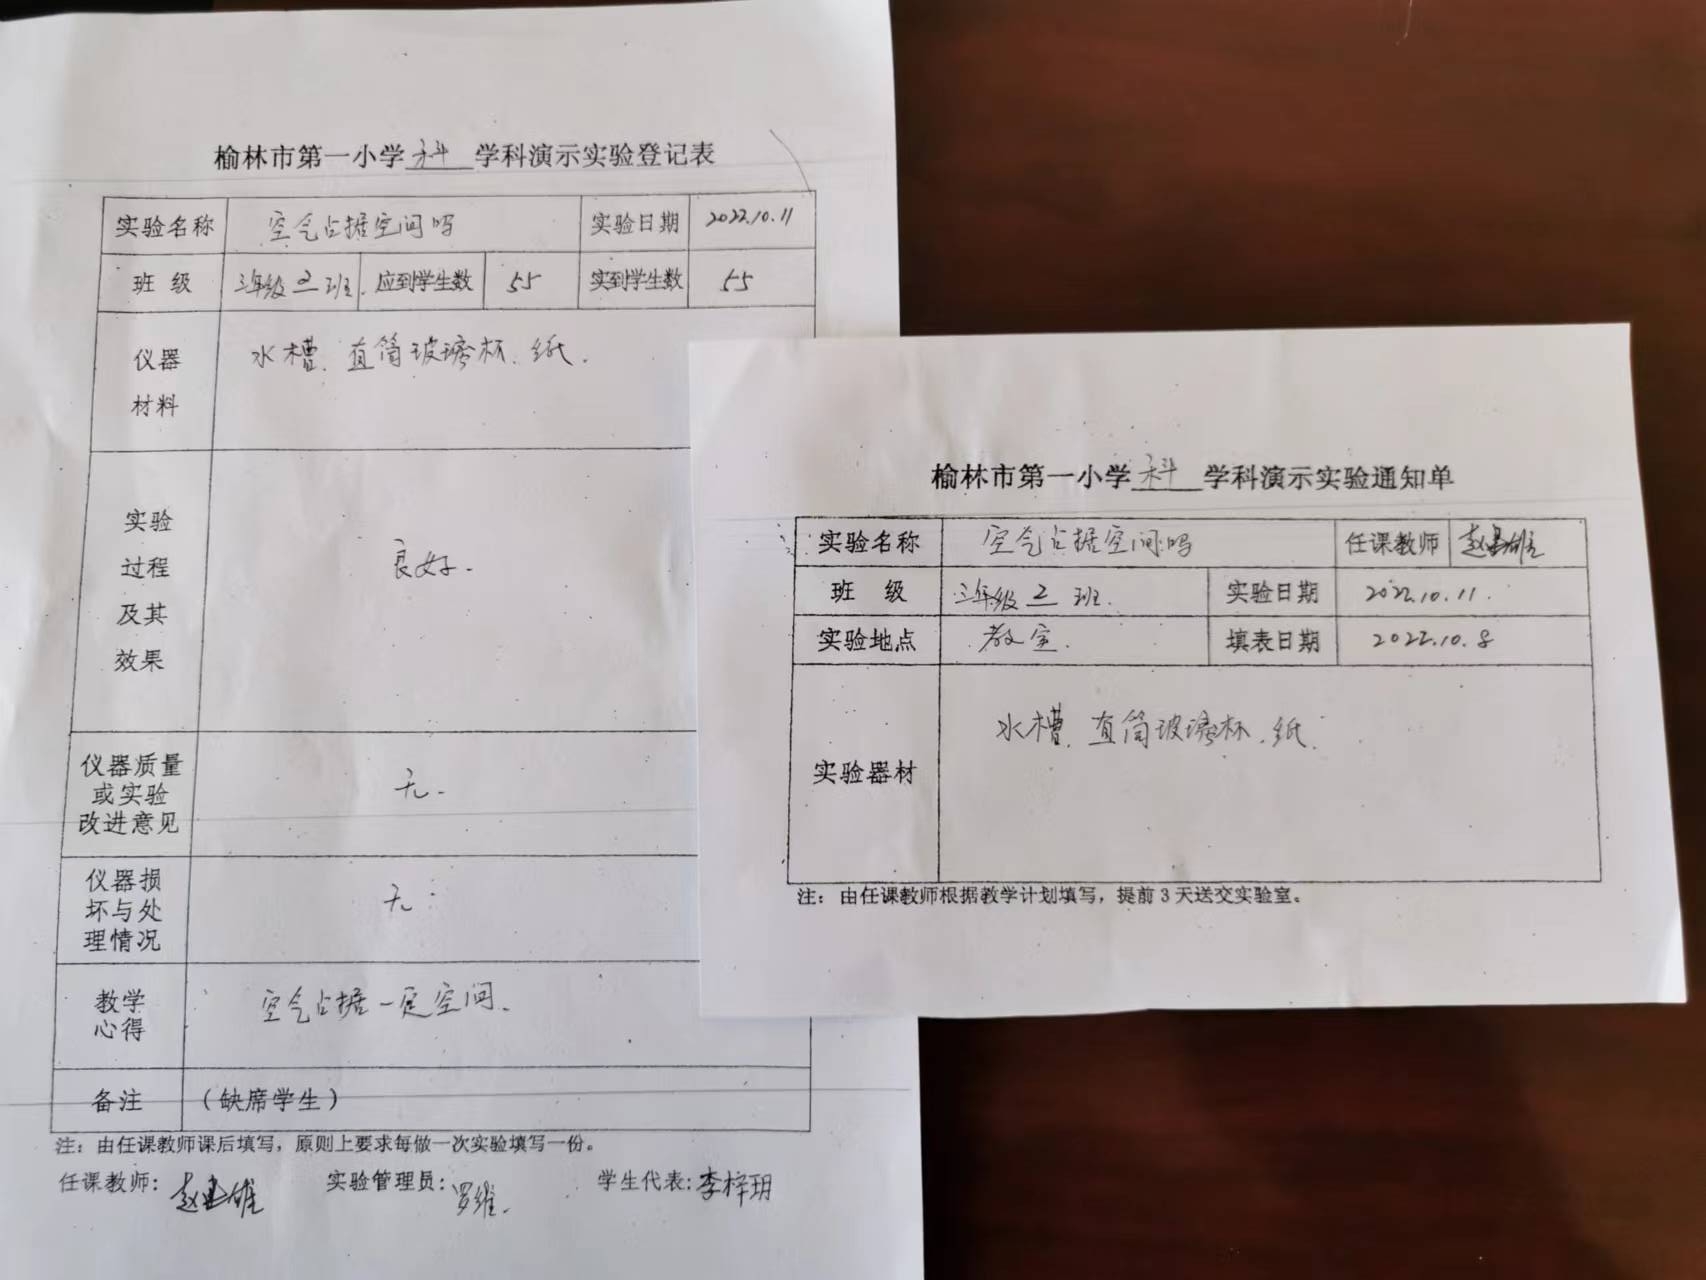 榆林市第一小学 科 学科演示实验登记表
实验名称 空气占据空间吗 实验日期 2022.10.11
班 级 三年级 2 班. 应到学生数 55 实到学生数 55
仪器
材料
水槽、直筒玻璃杯、纸.
实验
过程
及其
效果
良好.
仪器质量
或实验
改进意见
无.
仪器损
坏与处
理情况
无.
教学
心得
空气占据一定空间.
备注 (缺席学生)
注：由任课教师课后填写，原则上要求每做一次实验填写一份。
任课教师: 赵建雄 实验管理员: 罗维. 学生代表: 李梓玥
榆林市第一小学 科 学科演示实验通知单
实验名称 空气占据空间吗 任课教师 赵建雄
班 级 三年级 2 班. 实验日期 2022.10.11.
实验地点 教室. 填表日期 2022.10.8
实验器材 水槽、直筒玻璃杯、纸.
注：由任课教师根据教学计划填写，提前 3 天送交实验室。